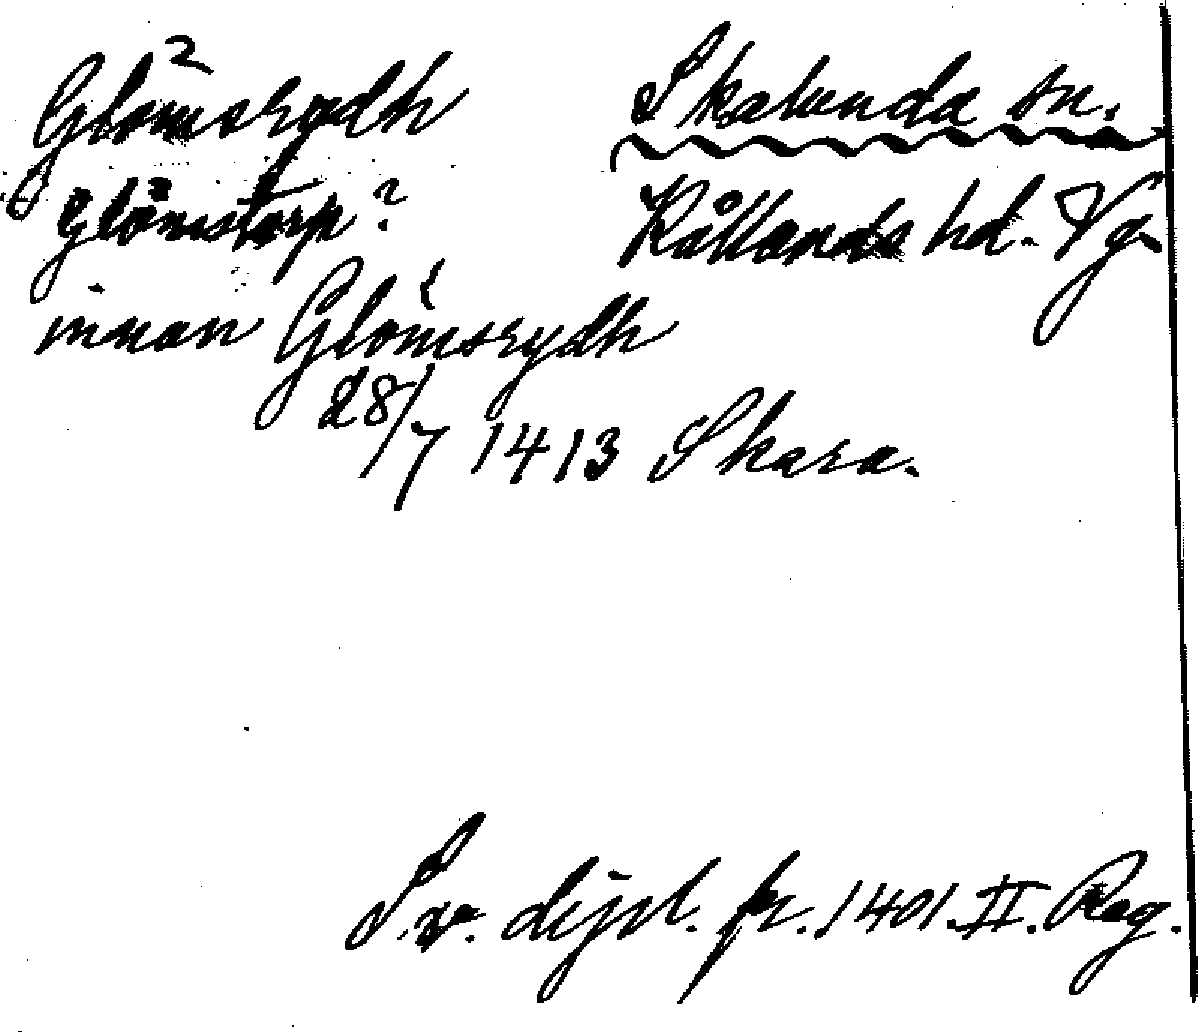 Glömsrydh
Skalunda sn.
Glömstorp?
Kållands hd. Vg.
innan Glömsrydh
28/7 1413 Skara.
Sv. dipl. fr. 1401. II. Reg.